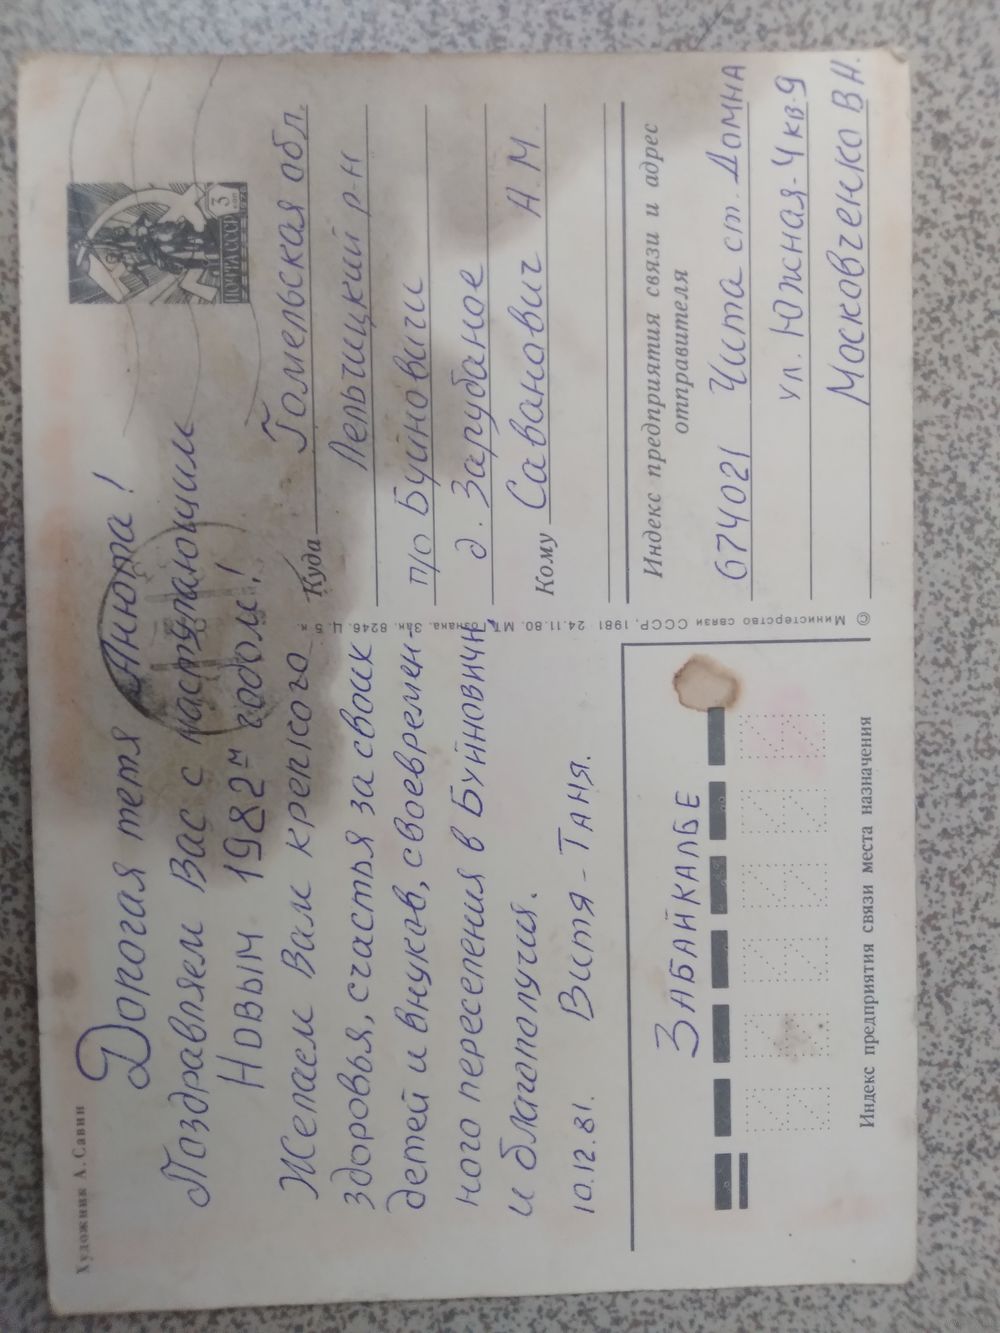 Художник А. Савин
Дорогая тетя Анюта!
Поздравляем Вас с наступающим
Новым 1982м годом!
Желаем Вам крепкого
здоровья, счастья за своих
детей и внуков, своевремен-
ного переселения в Буйновичи
и благополучия.
10.12.81. Витя - Таня.
ЗАБАЙКАЛЬЕ
Индекс предприятия связи места назначения
© Министерство связи СССР. 1981 24.11.80. МТ Гознака. Зак. 8246. Ц. 5 к.
ПОЧТА СССР 3 коп
Куда Гомельская обл.
Лельчицкий р-н
п/о Буйновичи
д. Зарубаное
Кому Саванович А.М.
Индекс предприятия связи и адрес
отправителя
674021 Чита ст. Домна
ул. Южная-4 кв.9
Московченко В.Н.